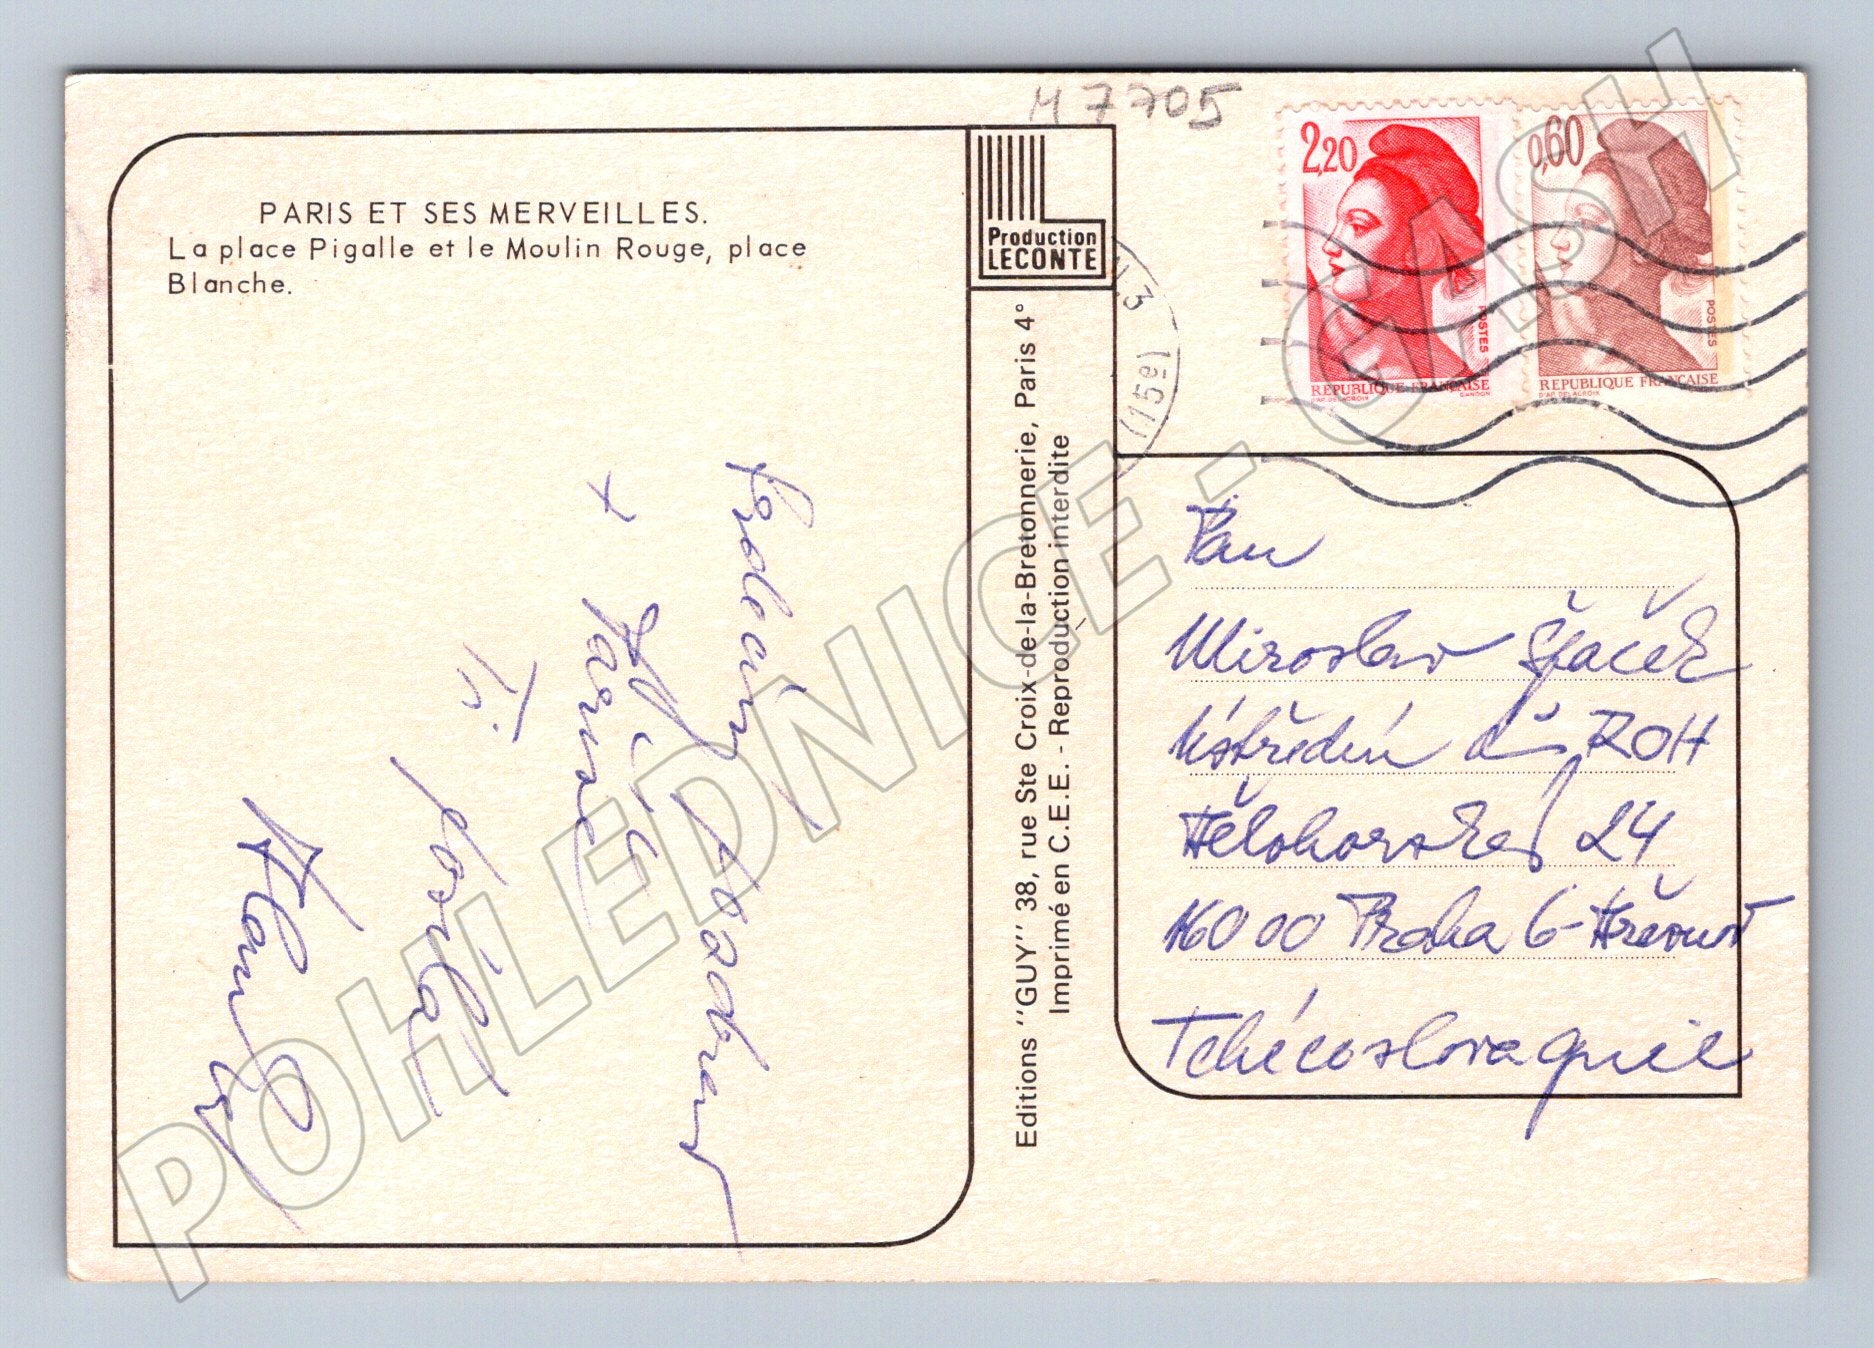 M 7705
PARIS ET SES MERVEILLES.
La place Pigalle et le Moulin Rouge, place
Blanche.
Production
LECONTE
Editions "GUY" 38, rue Ste Croix-de-la-Bretonnerie, Paris 4°
Imprimé en C.E.E. - Reproduction interdite
2,20
POSTES
REPUBLIQUE FRANÇAISE
D'AP. DELACROIX GANDON
0,60
POSTES
REPUBLIQUE FRANÇAISE
D'AP. DELACROIX
(15e)
Srdečný pozdrav
z
Paříže
Ti
posílá
Pan
Miroslav Špaček
Ústřední dům ROH
Bělohorská 24
160 00 Praha 6-Břevnov
Tchécoslovaquie
POHLEDNICE - CASH